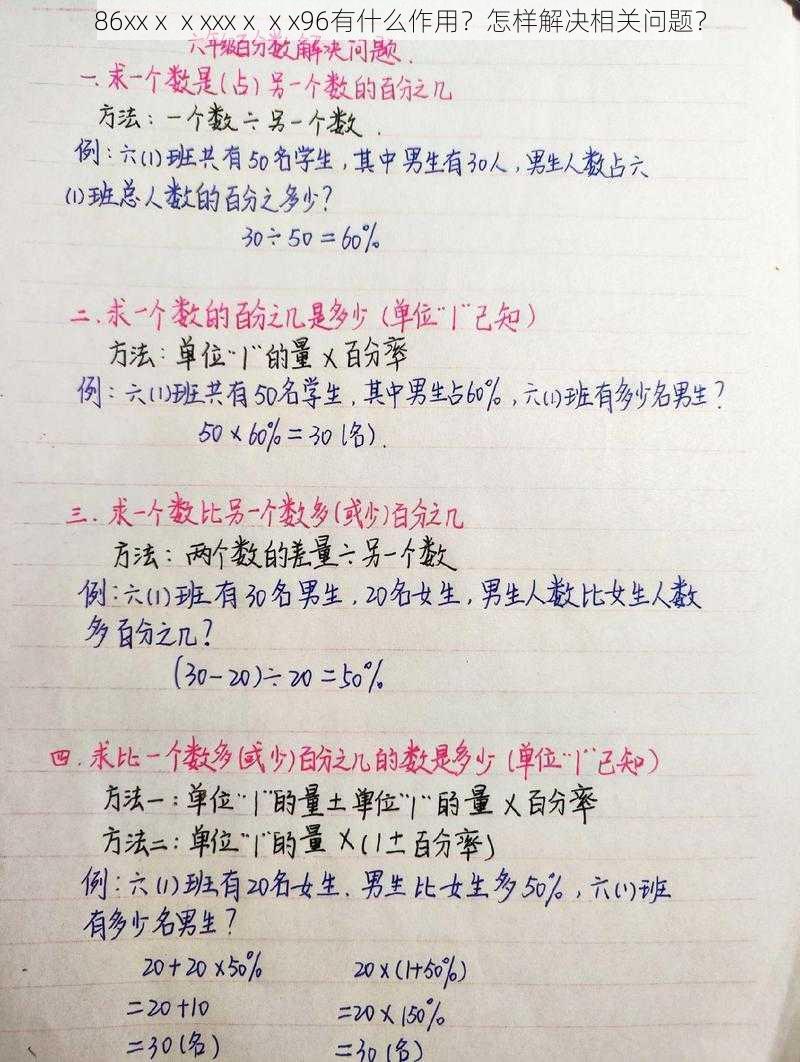 86xxⅹⅹxxxⅹⅹx96有什么作用？怎样解决相关问题？
六年级百分数解决问题.
一.求一个数是(占)另一个数的百分之几
方法：一个数÷另一个数.
例：六(1)班共有50名学生，其中男生有30人，男生人数占六
(1)班总人数的百分之多少？
30÷50=60%
二.求一个数的百分之几是多少(单位"1"已知)
方法：单位"1"的量×百分率
例：六(1)班共有50名学生，其中男生占60%，六(1)班有多少名男生？
50×60%=30(名).
三.求一个数比另一个数多(或少)百分之几
方法：两个数的差量÷另一个数
例：六(1)班有30名男生，20名女生，男生人数比女生人数
多百分之几？
(30-20)÷20=50%
四.求比一个数多(或少)百分之几的数是多少(单位"1"已知)
方法一：单位"1"的量±单位"1"的量×百分率
方法二：单位"1"的量×(1±百分率)
例：六(1)班有20名女生，男生比女生多50%，六(1)班
有多少名男生？
20+20×50% 20×(1+50%)
=20+10 =20×150%
=30(名) =30(名)